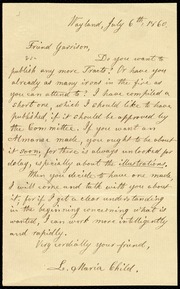 Wayland, July 6th, 1860.
Friend Garrison,
Do you want to
publish any more Tracts? Or have you
already as many irons in the fire as
you can attend to? I have compiled a
short one, which I should like to have
published if it should be approved by
the Committee. If you want an
Almanac made, you ought to be about
it soon, for there is always unlooked for
delay, especially about the illustrations.
When you decide to have one made,
I will come and talk with you about
it; for if I get a clear understanding
in the beginning concerning what is
wanted, I can work more intelligently
and rapidly.
Very cordially your friend,
L. Maria Child.